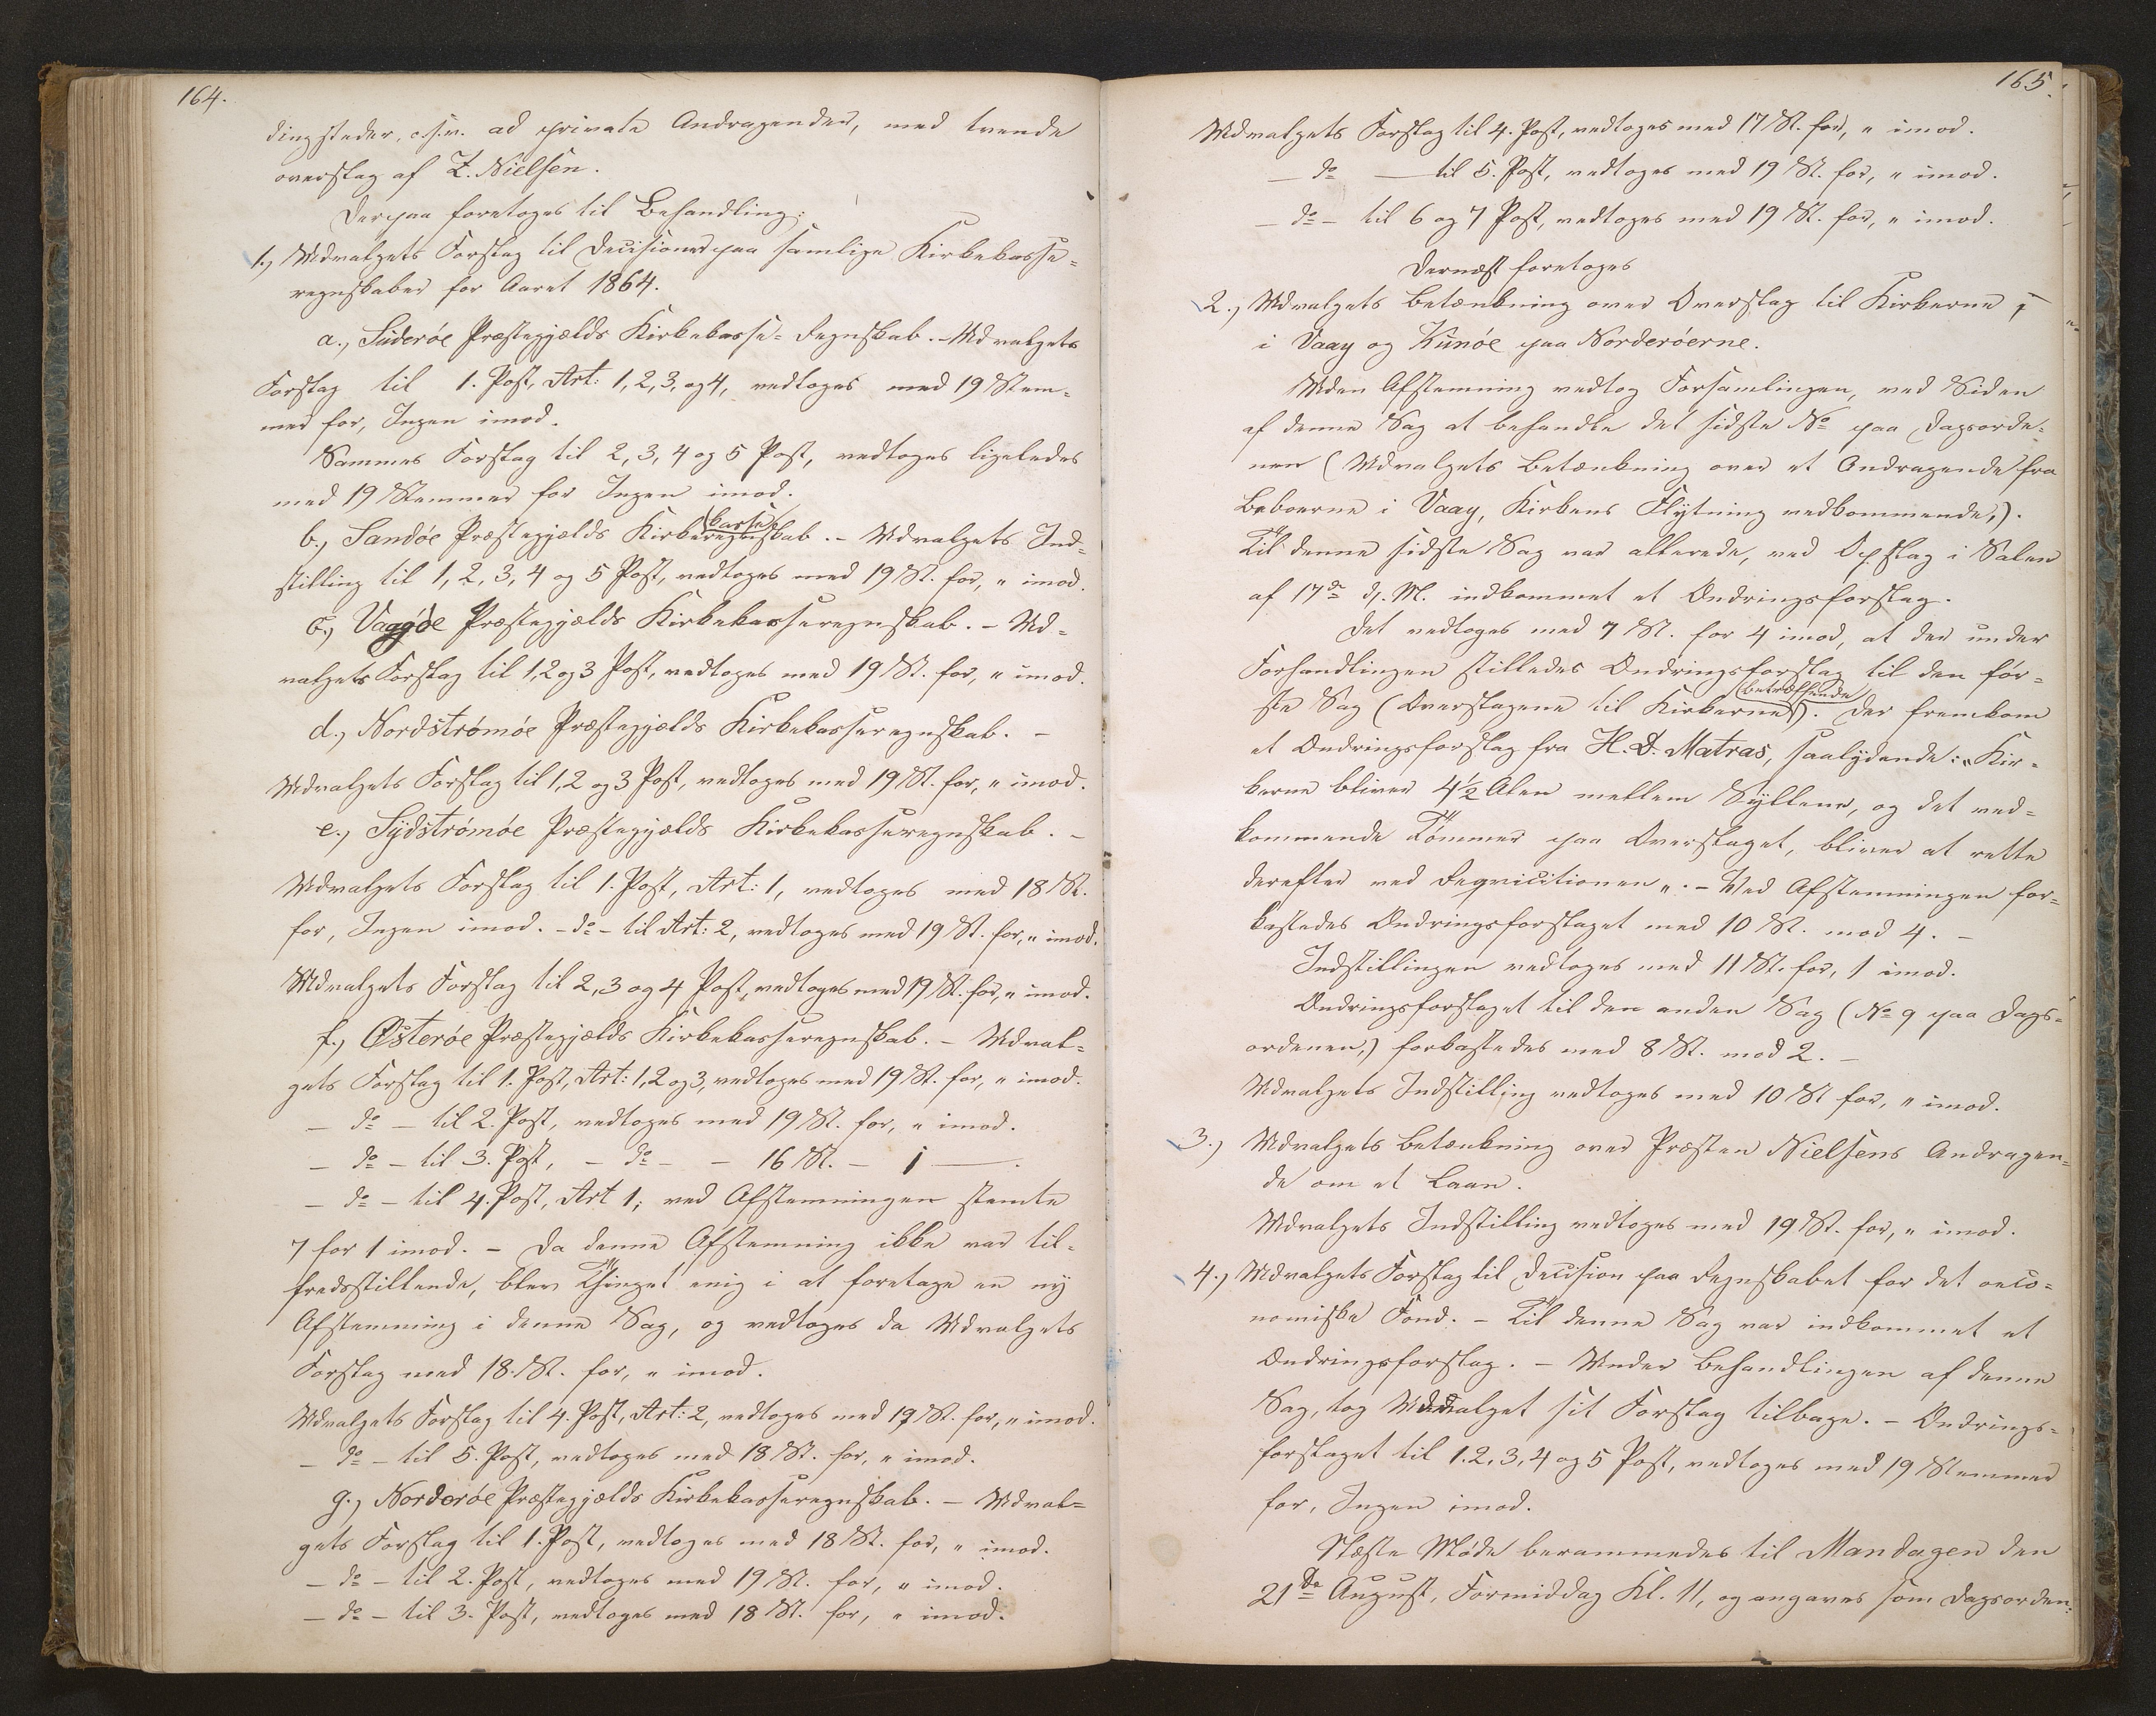 164.
dingsteder, o.s.v. ad private Andragender, med tvende
overslag af Z. Nielsen.
Derpaa foretoges til Behandling:
1.) Udvalgets Forslag til Decisioner paa samlige Kirkekasse-
regnskaber for Aaret 1864.
a.) Suderøe Præstegjælds Kirkekasse-Regnskab. Udvalgets
Forslag til 1. Post, Art: 1, 2, 3, og 4, vedtoges med 19 Stem-
mer for, Ingen imod.
Sammes Forslag til 2, 3, 4 og 5 Post, vedtoges ligeledes
med 19 Stemmer for Ingen imod.
b.) Sandøe Præstegjælds Kirke(kasse)regnskab. - Udvalgets Ind-
stilling til 1, 2, 3, 4 og 5 Post, vedtoges med 19 St. for, " imod.
c.) Vaagøe Præstegjælds Kirkekasseregnskab. - Ud-
valgets Forslag til 1, 2 og 3 Post, vedtoges med 19 St. for, " imod.
d.) Nordstrømøe Præstegjælds Kirkekasseregnskab. -
Udvalgets Forslag til 1, 2 og 3 Post, vedtoges med 19 St. for, " imod.
e.) Sydstrømøe Præstegjælds Kirkekasseregnskab. -
Udvalgets Forslag til 1. Post, Art: 1, vedtoges med 18 St.
for, Ingen imod. - do - til Art: 2, vedtoges med 19 St. for, " imod.
Udvalgets Forslag til 2, 3 og 4 Post, vedtoges med 19 St. for, " imod.
f.) Østerøe Præstegjælds Kirkekasseregnskab. - Udval-
gets Forslag til 1. Post, Art: 1, 2 og 3, vedtoges med 19 St. for, " imod.
- do - til 2. Post, vedtoges med 19 St. for, " imod.
- do - til 3. Post, - do - - 16 St. - 1 -.
- do - til 4. Post, Art 1; ved Afstemningen stemte
7 for 1 imod. - Da denne Afstemning ikke var til-
fredsstillende, blev Thinget enig i at foretage en ny
Afstemning i denne Sag, og vedtoges da Udvalgets
Forslag med 18. St. for, " imod.
Udvalgets Forslag til 4. Post, Art: 2, vedtoges med 19 St. for, " imod.
- do - til 5. Post, vedtoges med 18 St. for, " imod.
g.) Norderøe Præstegjælds Kirkekasseregnskab. - Udval-
gets Forslag til 1. Post, vedtoges med 18 St. for, " imod.
- do - til 2. Post, vedtoges med 19 St. for, " imod.
- do - til 3. Post, vedtoges med 18 St. for, " imod.
165.
Udvalgets Forslag til 4. Post, vedtoges med 17 St. for, " imod.
- do - til 5. Post, vedtoges med 19 St. for, " imod.
- do - til 6 og 7 Post, vedtoges med 19 St. for, " imod.
Dernæst foretoges
2.) Udvalgets Betænkning over Overslag til Kirkerne
i Vaay og Kunøe paa Norderøerne.
Uden Afstemning vedtog Forsamlingen, ved Siden
af denne Sag at behandle det sidste No paa Dagsorde-
nen (Udvalgets Betænkning over et Andragende fra
Beboerne i Vaay, Kirkens Flytning vedkommende,).
Til denne sidste Sag var allerede, ved Opslag i Salen
af 17de d. M. indkommet et Ændringsforslag.
Det vedtoges med 7 St. for 4 imod, at der under
Forhandlingen stilledes Ændringsforslag til den før-
ste Sag (Overslagene til Kirkerne (betræffende)). Der fremkom
et Ændringsforslag fra H. D. Matras, saalydende: "Kir-
kerne bliver 4½ Alen mellem Syllene, og det ved-
kommende Tømmer paa Overslaget, bliver at rette
derefter ved Reqvicitionen". - Ved Afstemningen for-
kastedes Ændringsforslaget med 10 St. mod 4. -
Indstillingen vedtoges med 11 St. for, 1 imod.
Ændringsforslaget til den anden Sag (No 9 paa Dags-
ordenen,) forkastedes med 8 St. mod 2. -
Udvalgets Indstilling vedtoges med 10 St for, " imod.
3.) Udvalgets Betænkning over Præsten Nielsens Andragen-
de om et Laan.
Udvalgets Indstilling vedtoges med 19 St. for, " imod.
4.) Udvalgets Forslag til Decision paa Regnskabet for det oeco-
nomiske Fond. - Til denne Sag var indkommet et
Ændringsforslag. - Under Behandlingen af denne
Sag, tog Udvalget sit Forslag tilbage. - Ændrings-
forslaget til 1. 2, 3, 4 og 5 Post, vedtoges med 19 Stemmer
for, Ingen imod.
Næste Møde berammedes til Mandagen den
21de August, Formiddag Kl. 11, og angaves som Dagsorden: